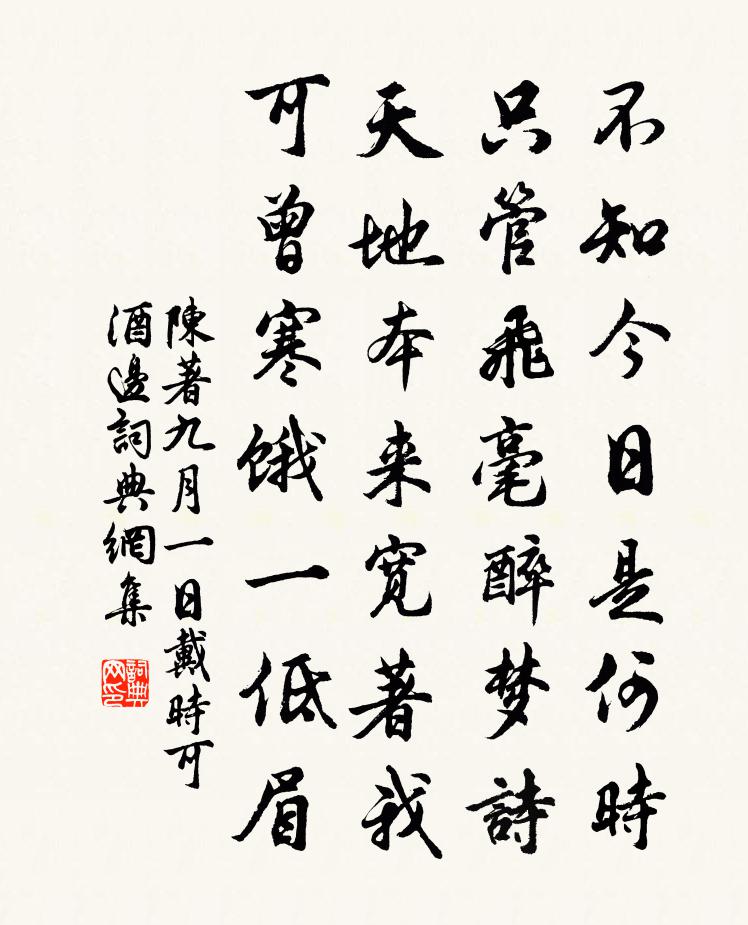 不知今日是何時
只管飛毫醉梦詩
天地本来寛著我
可曾寒餓一低眉
陳著九月一日戴時可
酒邊詞典網集
詞典网印